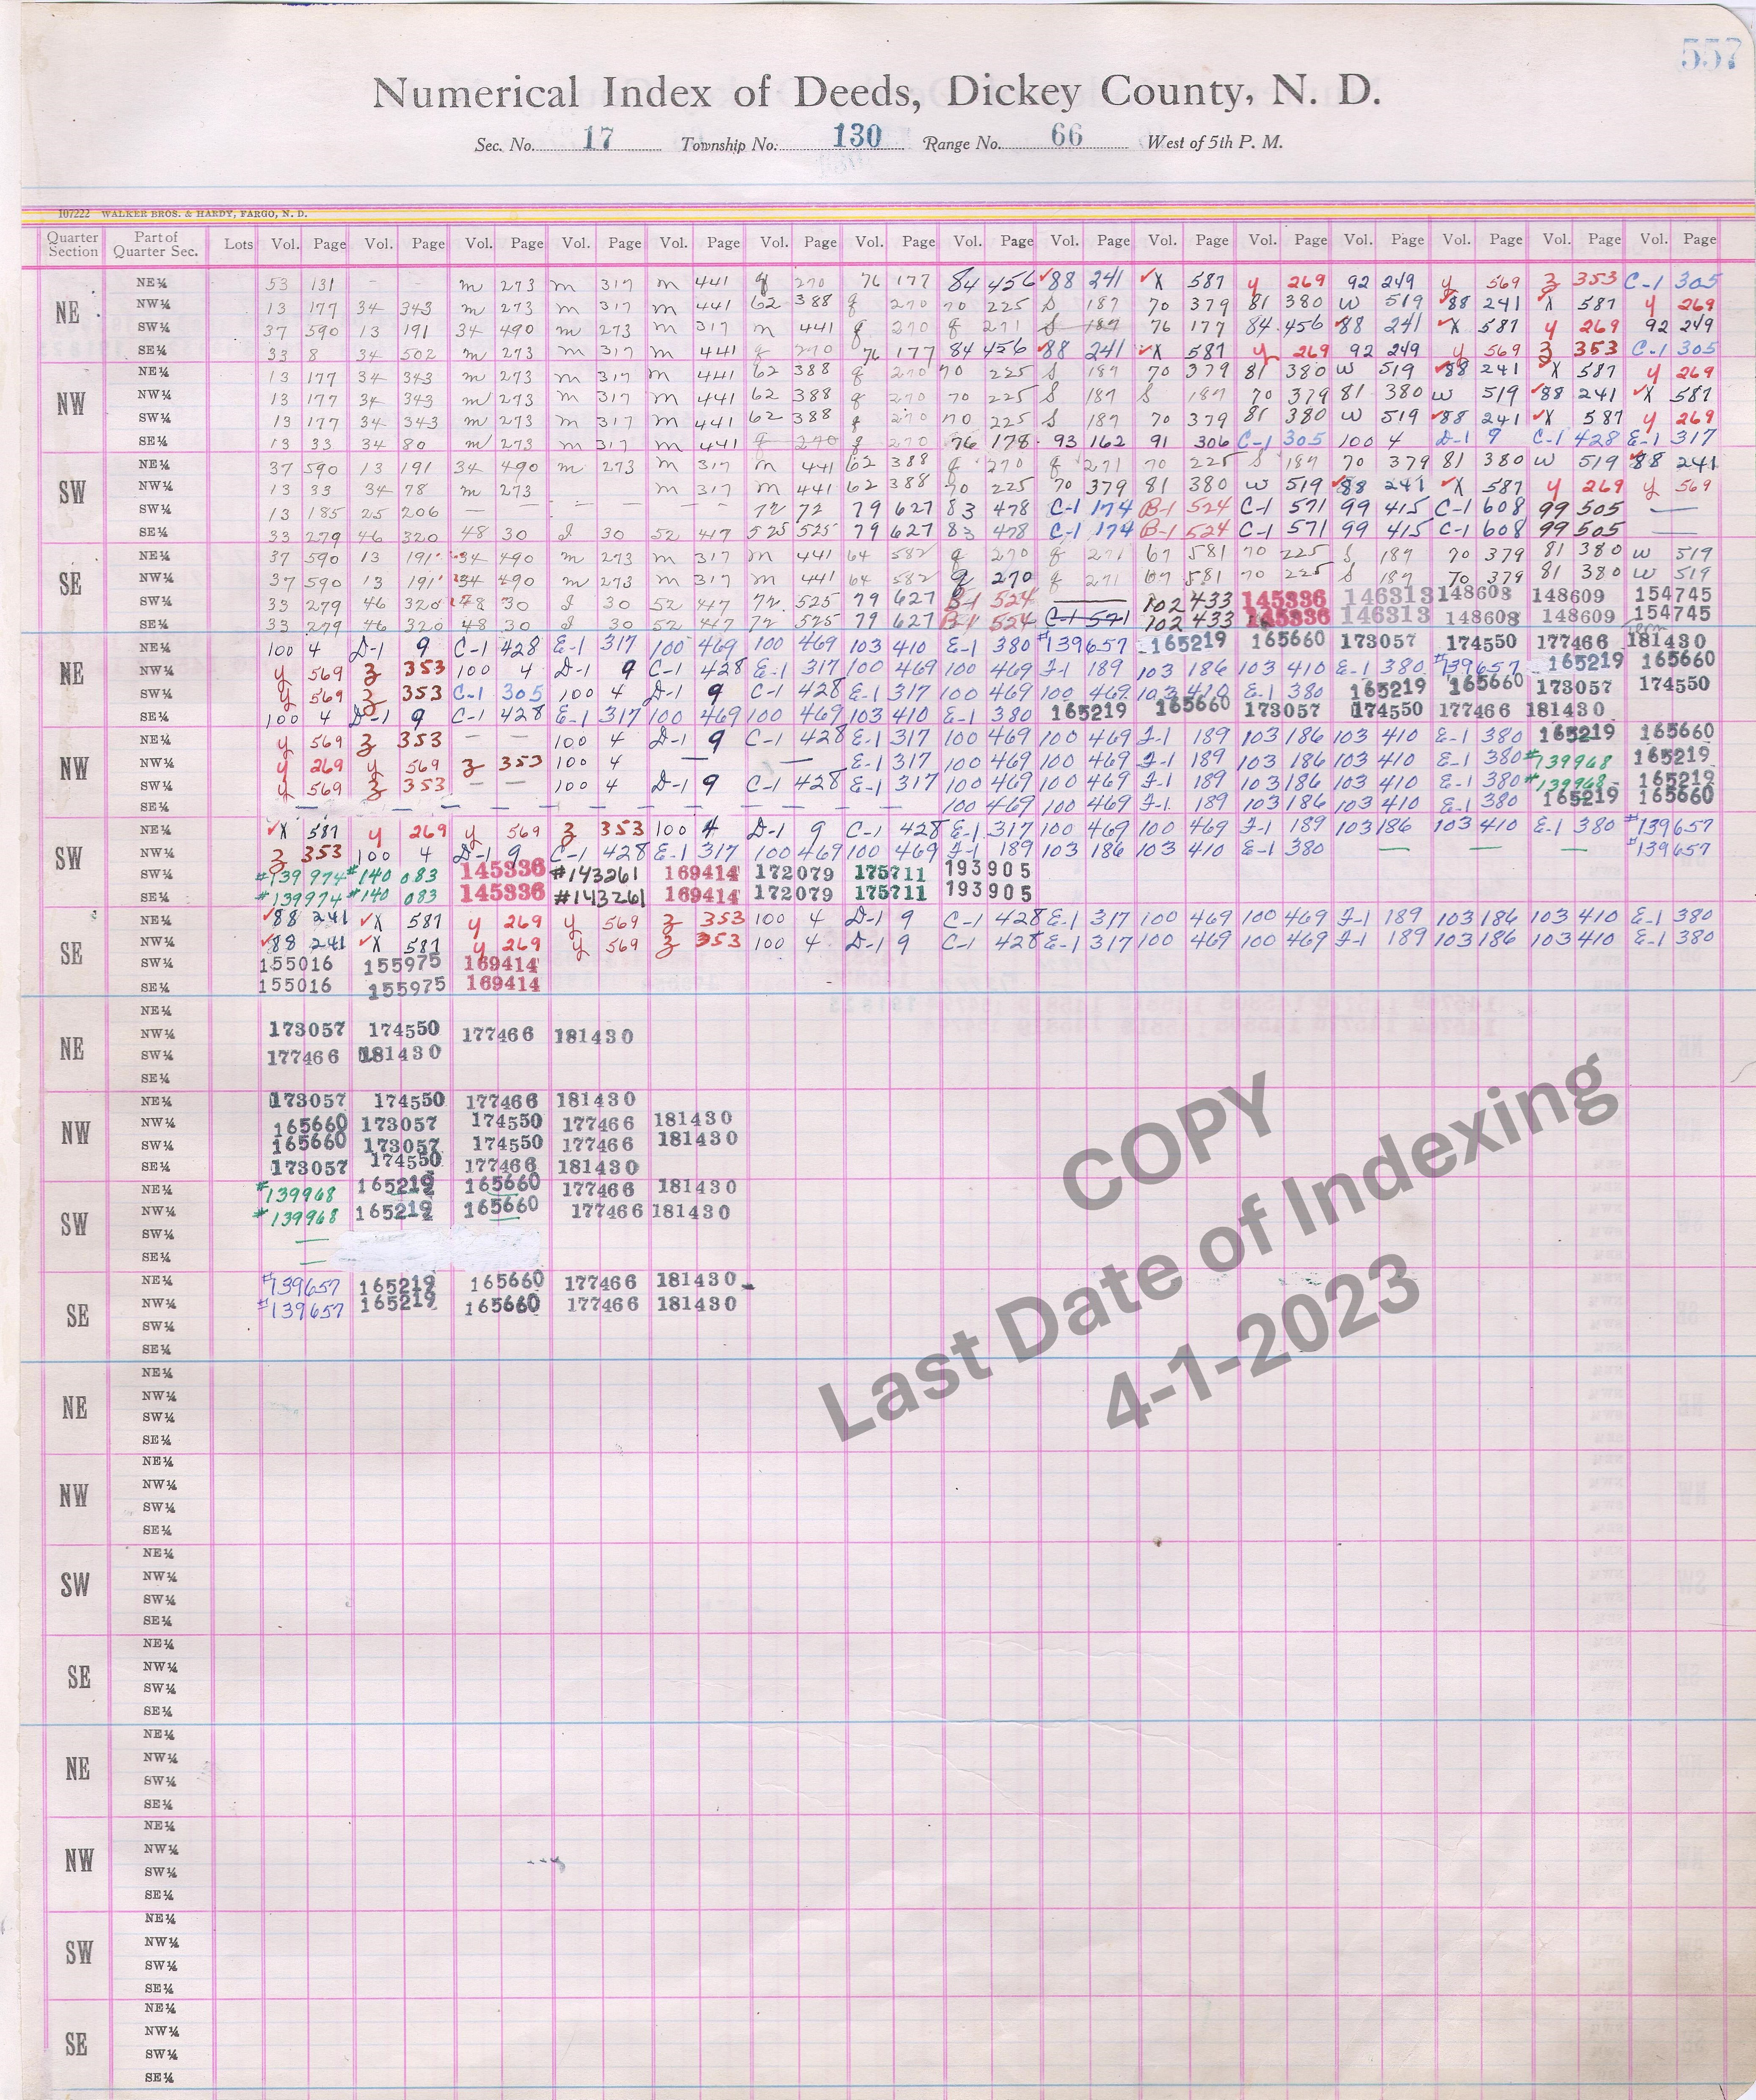 557
Numerical Index of Deeds, Dickey County, N. D.
Sec. No. 17 Township No. 130 Range No. 66 West of 5th P. M.
107222 WALKER BROS. & HARDY, FARGO, N. D.
Quarter Section Part of Quarter Sec. Lots Vol. Page Vol. Page Vol. Page Vol. Page Vol. Page Vol. Page Vol. Page Vol. Page Vol. Page Vol. Page Vol. Page Vol. Page Vol. Page Vol. Page Vol. Page
NE
NE¼ 53 131 - - m 273 m 317 m 441 q 270 76 177 84 456 ✓88 241 ✓X 587 y 269 92 249 y 569 z 353 C-1 305
NW¼ 13 177 34 343 m 273 m 317 m 441 62 388 q 270 70 225 S 187 70 379 81 380 W 519 ✓88 241 X 587 y 269
SW¼ 37 590 13 191 34 490 m 273 m 317 m 441 q 270 q 271 S 187 76 177 84 456 ✓88 241 ✓X 587 y 269 92 249
SE¼ 33 8 34 502 m 273 m 317 m 441 q 270 76 177 84 456 ✓88 241 ✓X 587 y 269 92 249 y 569 z 353 C-1 305
NW
NE¼ 13 177 34 343 m 273 m 317 m 441 62 388 q 270 70 225 S 187 70 379 81 380 W 519 ✓88 241 X 587 y 269
NW¼ 13 177 34 343 m 273 m 317 m 441 62 388 q 270 70 225 S 187 S 187 70 379 81 380 W 519 ✓88 241 ✓X 587
SW¼ 13 177 34 343 m 273 m 317 m 441 62 388 q 270 70 225 S 187 70 379 81 380 W 519 ✓88 241 ✓X 587 y 269
SE¼ 13 33 34 80 m 273 m 317 m 441 q 270 q 270 76 178 93 162 91 306 C-1 305 100 4 D-1 9 C-1 428 E-1 317
SW
NE¼ 37 590 13 191 34 490 m 273 m 317 m 441 62 388 q 270 q 271 70 225 S 187 70 379 81 380 W 519 ✓88 241
NW¼ 13 33 34 78 m 273 m 317 m 441 62 388 70 225 70 379 81 380 W 519 ✓88 241 ✓X 587 y 269 y 569
SW¼ 13 185 25 206 — — — — — — 72 72 79 627 83 478 C-1 174 B-1 524 C-1 571 99 415 C-1 608 99 505 —
SE¼ 33 279 46 320 48 30 I 30 52 417 525 525 79 627 83 478 C-1 174 B-1 524 C-1 571 99 415 C-1 608 99 505 —
SE
NE¼ 37 590 13 191 34 490 m 273 m 317 m 441 64 582 q 270 q 271 67 581 70 225 S 187 70 379 81 380 W 519
NW¼ 37 590 13 191 34 490 m 273 m 317 m 441 64 582 q 270 q 271 67 581 70 225 S 187 70 379 81 380 W 519
SW¼ 33 279 46 320 48 30 I 30 52 417 72 525 79 627 B-1 524 — 102 433 145336 146313 148608 148609 154745
SE¼ 33 279 46 320 48 30 I 30 52 417 72 525 79 627 B-1 524 C-1 571 102 433 145336 146313 148608 148609 154745
NE
NE¼ 100 4 D-1 9 C-1 428 E-1 317 100 469 100 469 103 410 E-1 380 #139657 165219 165660 173057 174550 177466 181430
NW¼ y 569 z 353 100 4 D-1 9 C-1 428 E-1 317 100 469 100 469 F-1 189 103 186 103 410 E-1 380 #139657 165219 165660
SW¼ y 569 z 353 C-1 305 100 4 D-1 9 C-1 428 E-1 317 100 469 100 469 103 410 E-1 380 165219 165660 173057 174550
SE¼ 100 4 D-1 9 C-1 428 E-1 317 100 469 100 469 103 410 E-1 380 165219 165660 173057 174550 177466 181430
NW
NE¼ y 569 z 353 — — 100 4 D-1 9 C-1 428 E-1 317 100 469 100 469 F-1 189 103 186 103 410 E-1 380 165219 165660
NW¼ y 269 y 569 z 353 100 4 — — E-1 317 100 469 100 469 F-1 189 103 186 103 410 E-1 380 #139968 165219
SW¼ y 569 z 353 — — 100 4 D-1 9 C-1 428 E-1 317 100 469 100 469 F-1 189 103 186 103 410 E-1 380 #139968 165219
SE¼ — — — — — — — — — — — — 100 469 100 469 F-1 189 103 186 103 410 E-1 380 165219 165660
SW
NE¼ ✓X 587 y 269 y 569 z 353 100 4 D-1 9 C-1 428 E-1 317 100 469 100 469 F-1 189 103 186 103 410 E-1 380 #139657
NW¼ z 353 100 4 D-1 9 C-1 428 E-1 317 100 469 100 469 F-1 189 103 186 103 410 E-1 380 — — — #139657
SW¼ #139974 #140 083 145336 #143261 169414 172079 175711 193905
SE¼ #139974 #140 083 145336 #143261 169414 172079 175711 193905
SE
NE¼ ✓88 241 ✓X 587 y 269 y 569 z 353 100 4 D-1 9 C-1 428 E-1 317 100 469 100 469 F-1 189 103 186 103 410 E-1 380
NW¼ ✓88 241 ✓X 587 y 269 y 569 z 353 100 4 D-1 9 C-1 428 E-1 317 100 469 100 469 F-1 189 103 186 103 410 E-1 380
SW¼ 155016 155975 169414
SE¼ 155016 155975 169414
NE
NE¼
NW¼ 173057 174550 177466 181430
SW¼ 177466 181430
SE¼
NW
NE¼ 173057 174550 177466 181430
NW¼ 165660 173057 174550 177466 181430
SW¼ 165660 173057 174550 177466 181430
SE¼ 173057 174550 177466 181430
SW
NE¼ #139968 165219 165660 177466 181430
NW¼ #139968 165219 165660 177466 181430
SW¼ —
SE¼ —
SE
NE¼ #139657 165219 165660 177466 181430
NW¼ #139657 165219 165660 177466 181430
SW¼
SE¼
NE
NE¼
NW¼
SW¼
SE¼
NW
NE¼
NW¼
SW¼
SE¼
SW
NE¼
NW¼
SW¼
SE¼
SE
NE¼
NW¼
SW¼
SE¼
NE
NE¼
NW¼
SW¼
SE¼
NW
NE¼
NW¼
SW¼
SE¼
SW
NE¼
NW¼
SW¼
SE¼
SE
NE¼
NW¼
SW¼
SE¼
COPY
Last Date of Indexing
4-1-2023